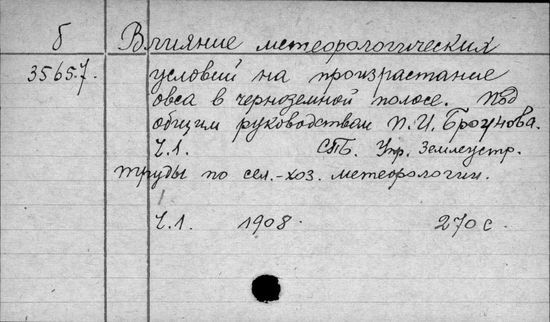 б Влияние метеорологических
35657. условий на произрастание
овса в черноземной полосе. Под
общим руководством П.И. Броунова.
Ч.1. СПБ. Упр. Землеустр.
труды по сел.-хоз. метеорологии.
Ч.1. 1908. 270 с.